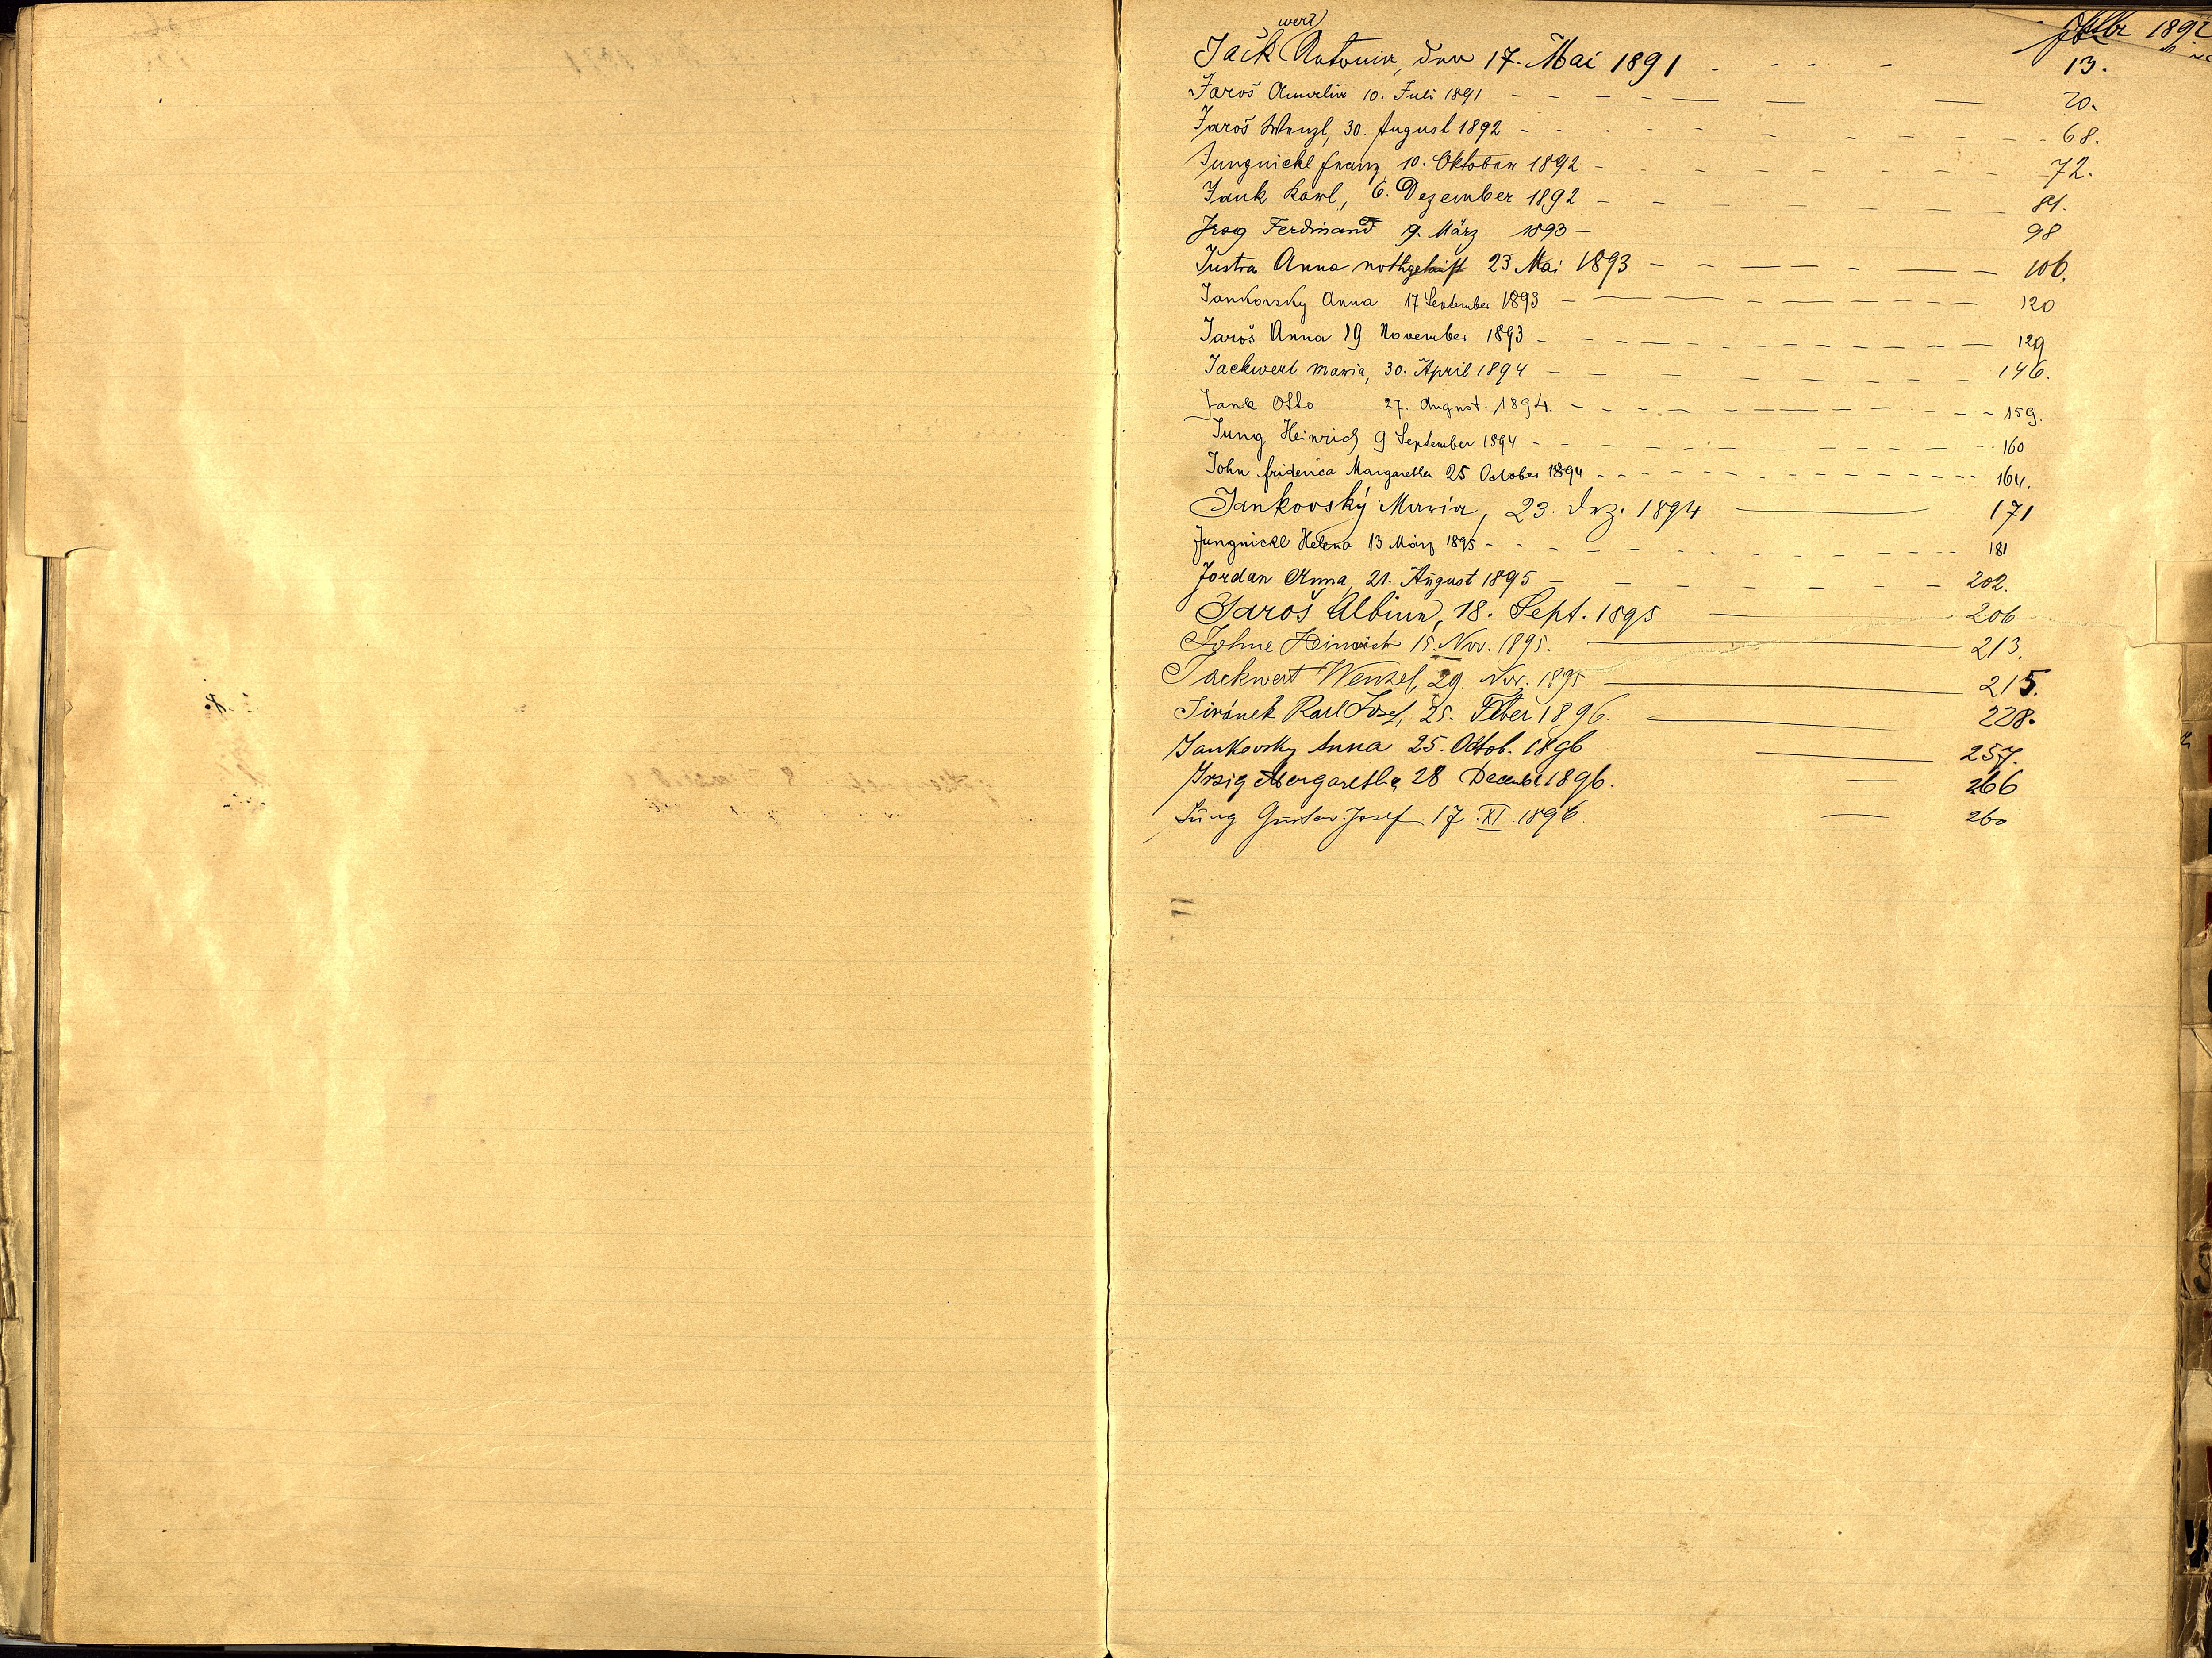 wert
Jack Antonia, den 17. Mai 1891 - - - - 13.
Jaroš Amalia 10. Juli 1891 - - - - 20.
Jaroš Wenzl, 30. August 1892 - - - - 68.
Jungnickl Franz, 10. Oktober 1892 - - - - 72.
Jank Karl, 6. Dezember 1892 - - - - 81.
Ferdinand 9. März 1893 - 98
Justra Anna nothgetauft 23 Mai 1893 - - - - 106.
Jankovsky Anna 17 September 1893 - - - - 120
Jaroš Anna 19 November 1893 - - - - 129
Jackwert Maria, 30. April 1894 - - - - 146.
Jank Otto 27. August. 1894. - - - - 159.
Jung Heinrich 9 September 1894 - - - - 160
John Friderica Margaretha 25 October 1894 - - - - 164.
Jankovský Maria, 23. Dez. 1894 — 171
Jungnickl Helena 13 März 1895 - - - - 181
Jordan Anna, 21. August 1895 - - - - 202.
Jaroš Albina, 18. Sept. 1895 — 206
Johne Heinrich 15. Nov. 1895. — 213.
Jackwert Wenzel, 29. Nov. 1895 — 215.
Jiránek Karl Josef, 25. Feber 1896. — 228.
Jankovsky Anna 25. Octob. 1896 — 257.
Irsig Margaretha 28 December 1896. — 266
Jung Gustav Josef 17. XI. 1896. — 260